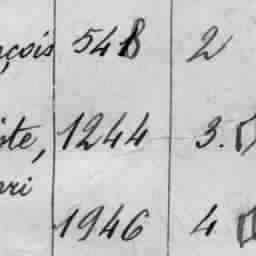 nçois 548 2
ôte, 1244 3.
ori
1946 4